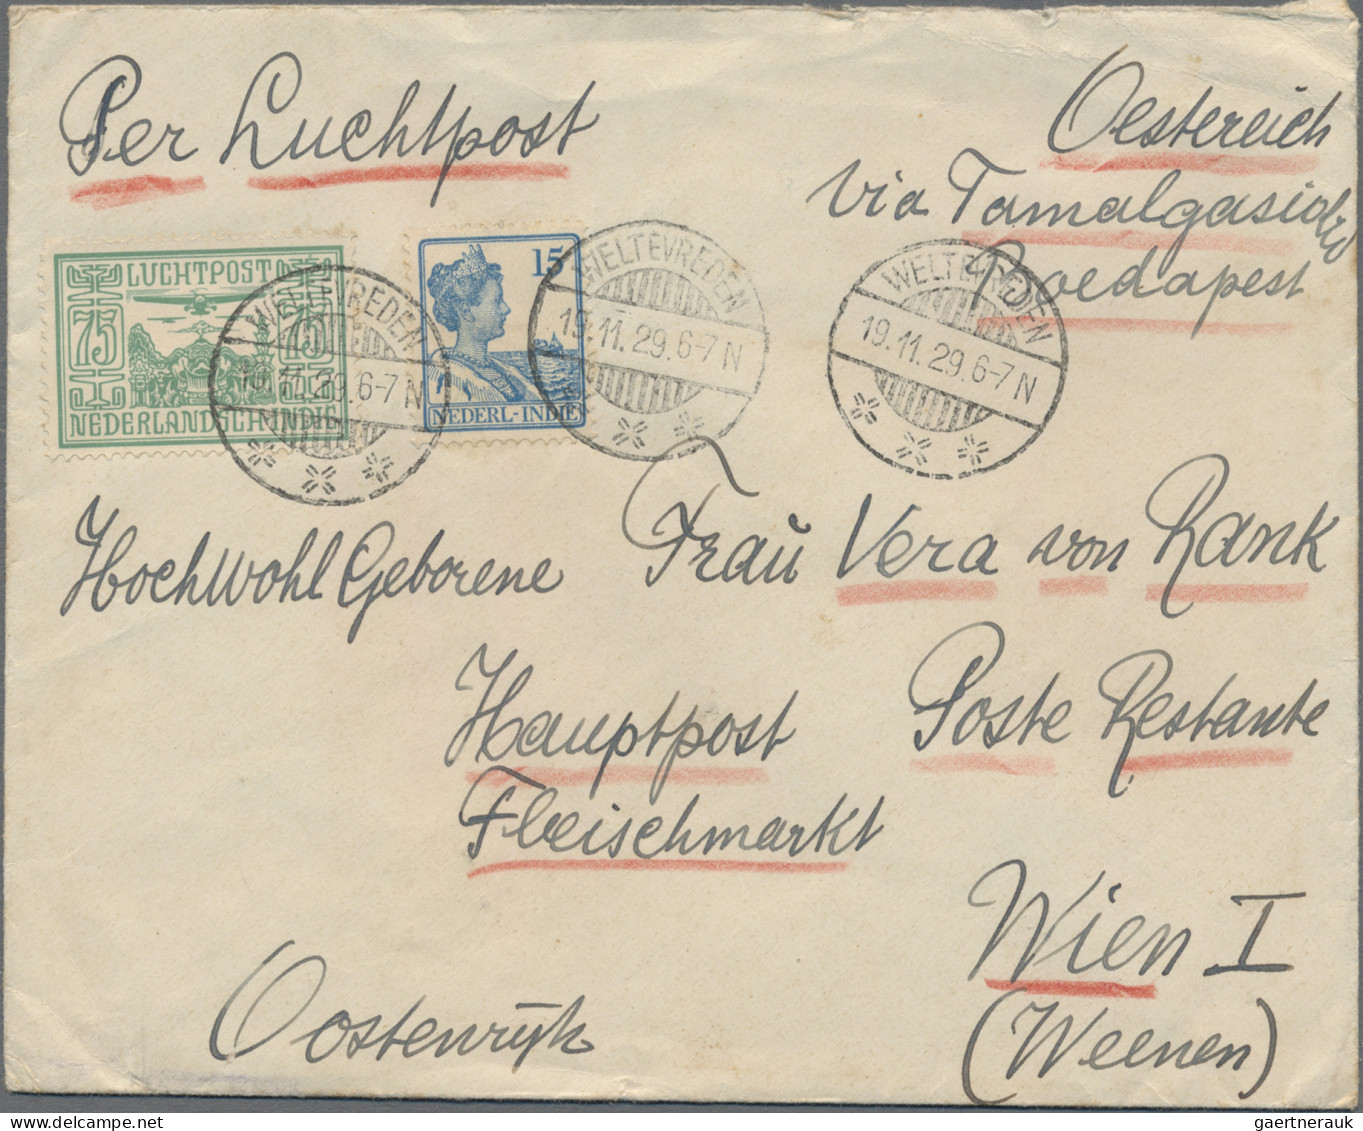 Per Luchtpost
Oestereich
via Tamalgasidzo
Boedapest
LUCHTPOST
75 75
NEDERLANDSCH-INDIE
15
NEDERL-INDIE
WELTEVREDEN
19.11.29.6-7N
WELTEVREDEN
19.11.29.6-7N
WELTEVREDEN
19.11.29.6-7N
HochWohlGeborene Frau Vera von Rank
Hauptpost Poste Restante
Fleischmarkt
Wien I
Oostenrijk (Weenen)
gaertnerauk